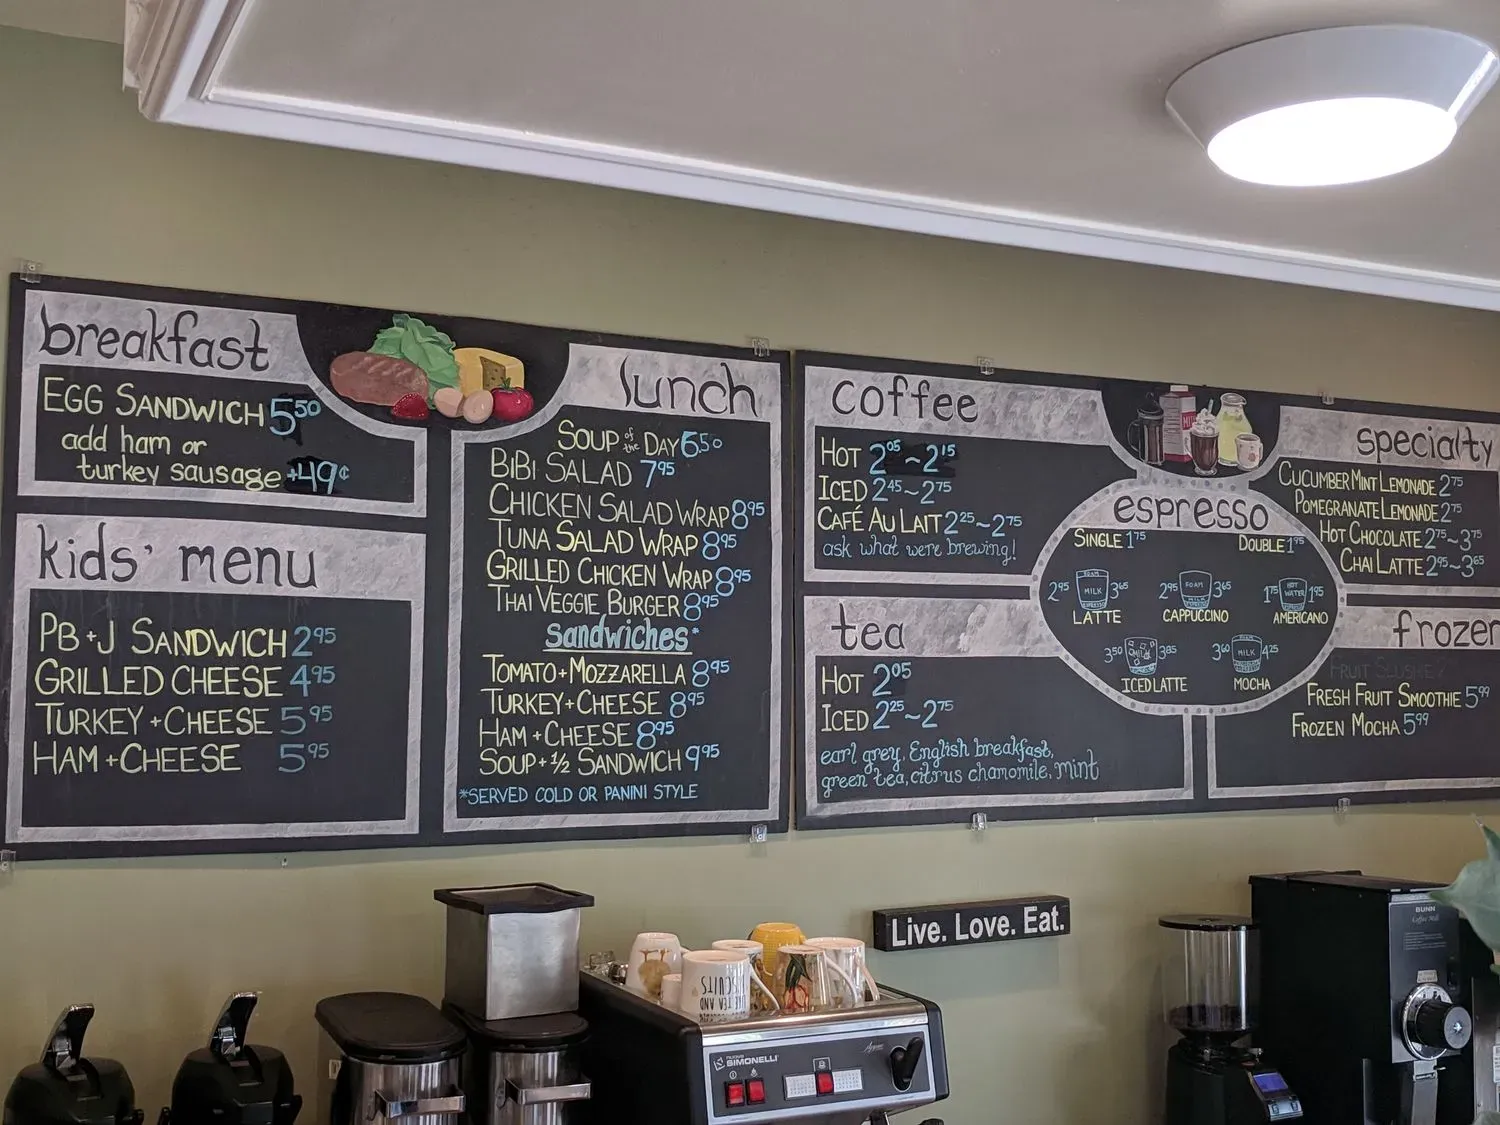 breakfast
EGG SANDWICH 5⁵⁰
add ham or
turkey sausage +49¢
kids' menu
PB+J SANDWICH 2⁹⁵
GRILLED CHEESE 4⁹⁵
TURKEY+CHEESE 5⁹⁵
HAM+CHEESE 5⁹⁵
lunch
SOUP of the DAY 6.⁵⁰
BIBI SALAD 7⁹⁵
CHICKEN SALAD WRAP 8⁹⁵
TUNA SALAD WRAP 8⁹⁵
GRILLED CHICKEN WRAP 8⁹⁵
THAI VEGGIE BURGER 8⁹⁵
Sandwiches*
TOMATO+MOZZARELLA 8⁹⁵
TURKEY+CHEESE 8⁹⁵
HAM+CHEESE 8⁹⁵
SOUP+½ SANDWICH 9⁹⁵
*SERVED COLD OR PANINI STYLE
coffee
HOT 2⁰⁵~2¹⁵
ICED 2⁴⁵~2⁷⁵
CAFÉ AU LAIT 2²⁵~2⁷⁵
ask what we're brewing!
tea
HOT 2⁰⁵
ICED 2²⁵~2⁷⁵
earl grey, English breakfast,
green tea, citrus chamomile, mint
espresso
SINGLE 1⁷⁵ DOUBLE 1⁹⁵
2⁹⁵ FOAM MILK ESPRESSO 3⁶⁵
LATTE
2⁹⁵ FOAM MILK ESPRESSO 3⁶⁵
CAPPUCCINO
1⁷⁵ HOT WATER ESPRESSO 1⁹⁵
AMERICANO
3⁵⁰ MILK 3⁸⁵
ICED LATTE
3⁶⁰ MILK 4²⁵
MOCHA
specialty
CUCUMBER MINT LEMONADE 2⁷⁵
POMEGRANATE LEMONADE 2⁷⁵
HOT CHOCOLATE 2⁷⁵~3⁷⁵
CHAI LATTE 2⁹⁵~3⁶⁵
frozen
FRUIT SLUSHIE 2
FRESH FRUIT SMOOTHIE 5⁹⁹
FROZEN MOCHA 5⁹⁹
Live. Love. Eat.
TEA AND
BISCUITS
SIMONELLI
BUNN
Coffee Mill